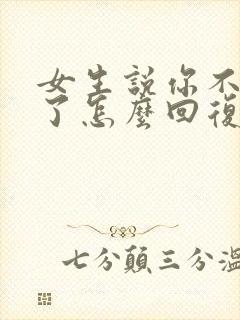 女生説你不
了怎麼回復
七分顛三分溫